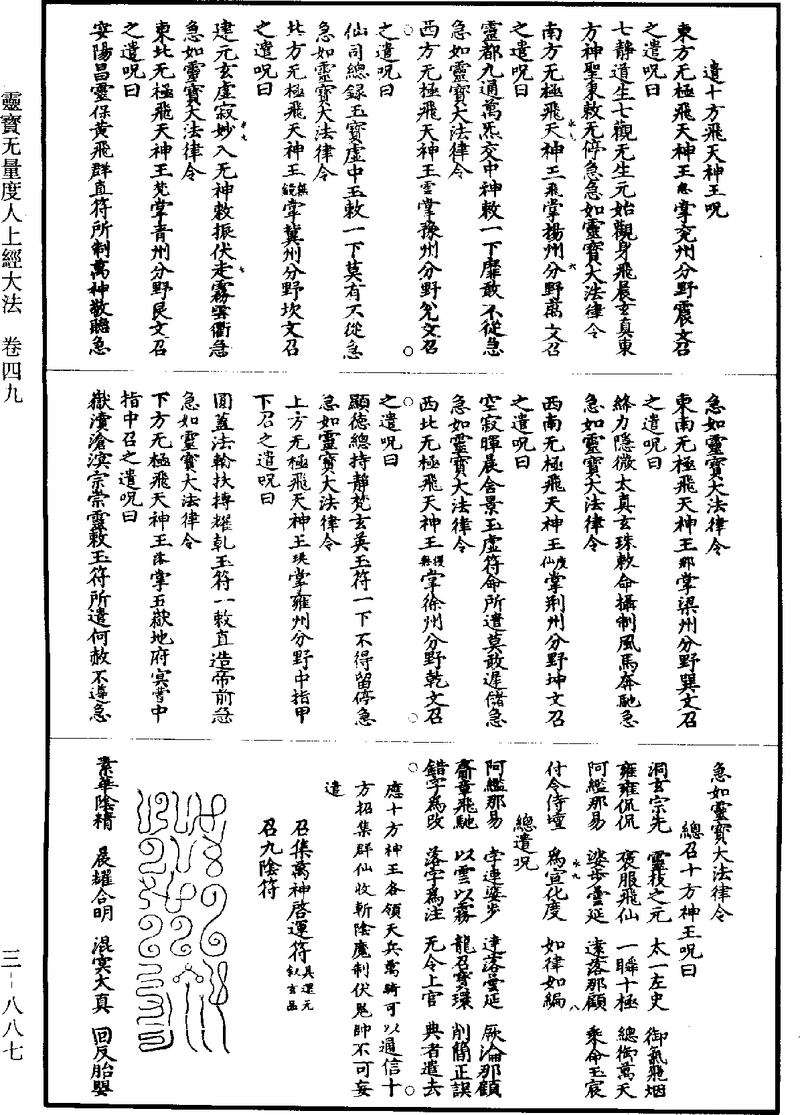 靈寶无量度人上經大法 卷四九
三-八八七
遣十方飛天神王呪
東方无極飛天神王 掌兗州分野震文召
之遣呪曰
七靜道生七觀无生元始觀身飛晨玄真東
方神聖秉敕无停急急如靈寶大法律令
南方无極飛天神王飛掌揚州分野離文召
之遣呪曰
靈都九通萬炁交中神敕一下靡敢不從急
急如靈寶大法律令
西方无極飛天神王雲掌豫州分野兌文召
之遣呪曰
仙司總錄玉寶虛中玉敕一下莫有不從急
急如靈寶大法律令
北方无極飛天神王無鏡掌冀州分野坎文召
之遣呪曰
建元玄虛寂妙入无神敕振伏走霧雲衢急
急如靈寶大法律令
東北无極飛天神王梵掌青州分野艮文召
之遣呪曰
安陽昌靈保黃飛群直符所制萬神敬聽急
急如靈寶大法律令
東南无極飛天神王那掌梁州分野巽文召
之遣呪曰
終力隱微太真玄珠敕命攝制風馬奔馳急
急如靈寶大法律令
西南无極飛天神王度仙掌荆州分野坤文召
之遣呪曰
空寂暉晨含景玉虛符命所遣莫敢遲儲急
急如靈寶大法律令
西北无極飛天神王 掌徐州分野乾文召
之遣呪曰
顯德總持靜梵玄英玉符一下不得留停急
急如靈寶大法律令
上方无極飛天神王 掌雍州分野中指甲
下召之遣呪曰
圓蓋法輪扶摶耀乹玉符一敕直造帝前急
急如靈寶大法律令
下方无極飛天神王落掌五嶽地府㝠曹中
指中召之遣呪曰
嶽瀆滄溟宗崇靈敕玉符所遣何赦不遵急
急如靈寶大法律令
總召十方神王呪曰
洞玄宗先 靈枝之元 太一左史 御氣飛烟
雍雍侃侃 褒服飛仙 一瞬十極 總御萬天
阿䌫那易 娑步曇延 遠落那顧 乘命玉宸
付令侍壇 為宣化度 如律如編
總遣呪
阿䌫那易 字連婆步 達落曇延 厥淪那顧
齋章飛馳 以雲以霧 龍召寶璪 削簡正誤
錯字為改 落字為注 无令上官 典者遣去
應十方神王各領天兵萬騎可以通信十
方招集群仙收斬陰魔制伏鬼帥不可妄
遣
召集萬神啓運符具還元叙玄品
召九陰符
素華陰精 晨耀合明 混㝠太真 回反胎嬰